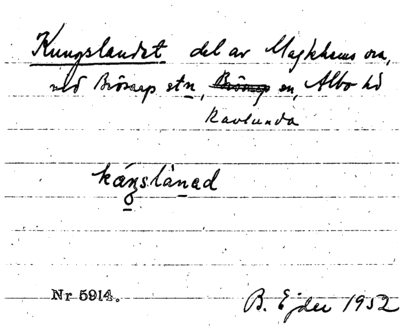 Kungslandet del av Maglehems ora,
vid Brösarp stn, Brösarp sn, Albo hd
Ravlunda
káŋslánad
Nr 5914. B. Ejder 1952